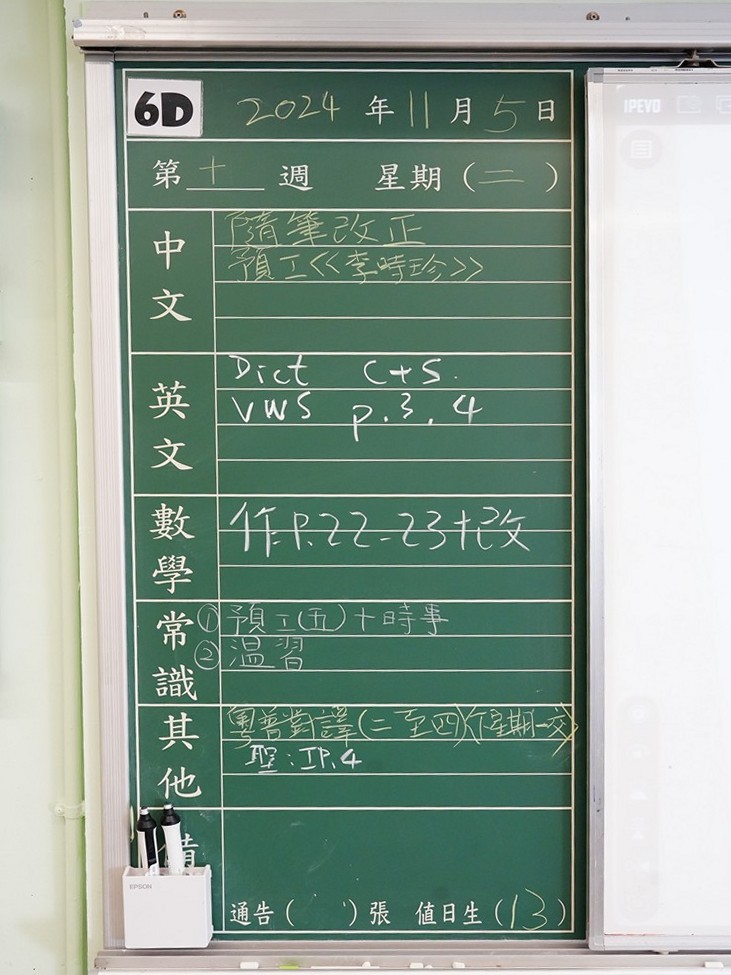 6D 2024 年 11 月 5 日
第 十 週 星期 ( 二 )
中文
隨筆改正
預工<<李時珍>>
英文
Dict C+S.
VWS p.3.4
數學
作P.22-23+改
常識
① 預工(五)+時事
② 温習
其他
粵普對譯(二至四)(下星期一交)
聖:IP.4
備
通告 ( ) 張 值日生 (13)
EPSON
IPEVO